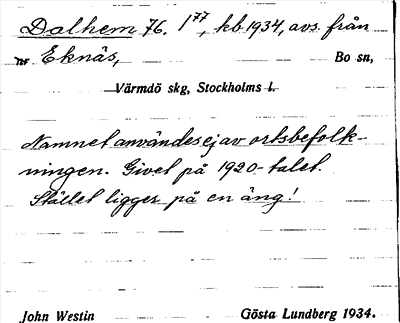 Dalhem 76. 1⁷⁷, kb 1934, avs. från
nr Eknäs, Bo sn,
Värmdö skg, Stockholms l.
Namnet användes ej av ortsbefolk-
ningen. Givet på 1920-talet.
Stället ligger på en äng!
John Westin Gösta Lundberg 1934.